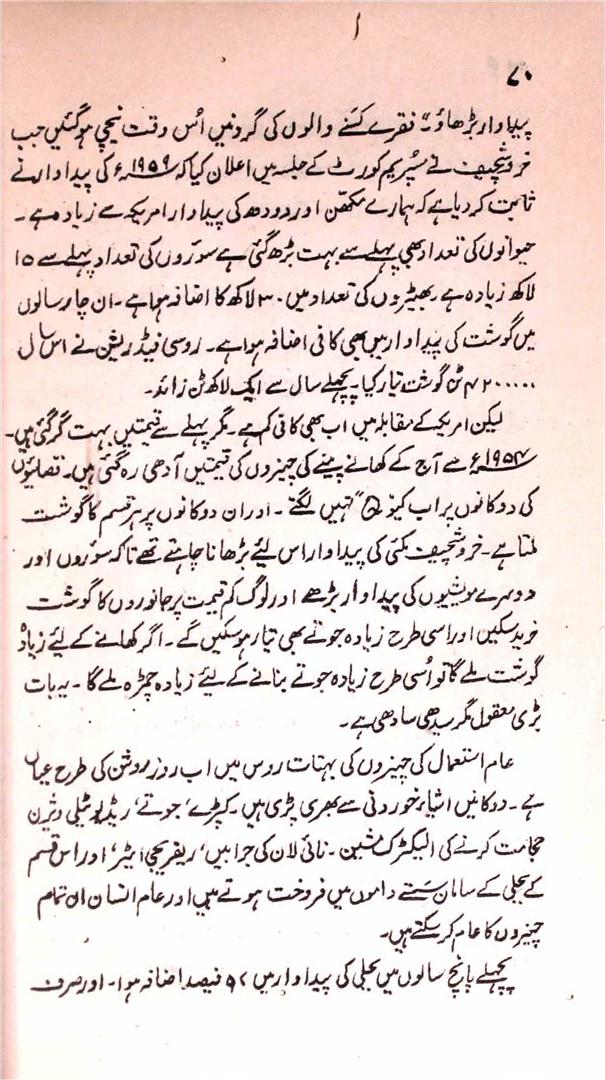 ۷۰
پیداوار بڑھاؤ“ فقرے کسنے والوں کی گردنیں اُس وقت نیچی ہوگئیں جب
خروشچیف نے سُپریم کورٹ کے جلسہ میں اعلان کیا کہ ۱۹۵۹ء کی پیداوار نے
ثابت کر دیا ہے کہ ہمارے مکھن اور دودھ کی پیداوار امریکہ سے زیادہ ہے۔
حیوانوں کی تعداد بھی پہلے سے بہت بڑھ گئی ہے سوروں کی تعداد پہلے سے ۱۵
لاکھ زیادہ ہے۔ بھیڑوں کی تعداد میں ۳۰ لاکھ کا اضافہ ہوا ہے۔ ان چار سالوں
میں گوشت کی پیداوار میں بھی کافی اضافہ ہوا ہے۔ روسی فیڈریشن نے اس سال
۴۲۰۰۰۰۰ ٹن گوشت تیار کیا۔ پچھلے سال سے ایک لاکھ ٹن زائد۔
لیکن امریکہ کے مقابلہ میں اب بھی کافی کم ہے۔ مگر پہلے سے قیمتیں بہت گر گئی ہیں۔
۱۹۵۴ء سے آج کے کھانے پینے کی چیزوں کی قیمتیں آدھی رہ گئی ہیں۔ قصائیوں
کی دوکانوں پر اب کیو ”Q“ نہیں لگتے۔ اور ان دوکانوں پر ہر قسم کا گوشت
ملتا ہے۔ خروشچیف مکئی کی پیداوار اس لیٔے بڑھانا چاہتے تھے تاکہ سوروں اور
دوسرے مویشیوں کی پیداوار بڑھے اور لوگ کم قیمت پر جانوروں کا گوشت
خرید سکیں اور اسی طرح زیادہ جوتے بھی تیار ہو سکیں گے۔ اگر کھانے کے لیٔے زیادہ
گوشت ملے گا تو اُسی طرح زیادہ جوتے بنانے کے لیٔے زیادہ چمڑہ ملے گا۔ یہ بات
بڑی معقول مگر سیدھی سادھی ہے۔
عام استعمال کی چیزوں کی بہتات روس میں اب روز روشن کی طرح عیاں
ہے۔ دوکانیں اشیاء خوردنی سے بھری پڑی ہیں۔ کپڑے‘ جوتے‘ ریڈیو ٹیلی ویژن
حجامت کرنے کی الیکٹرک مشین۔ نائی لان کی جرابیں‘ ریفریجی ایٹر‘ اور اس قسم
کے بجلی کے سامان سستے داموں میں فروخت ہوتے ہیں اور عام انسان ان تمام
چیزوں کا عام کر سکتے ہیں۔
پچھلے پانچ سالوں میں بجلی کی پیداوار میں ۹۲ فیصد اضافہ ہوا۔ اور صرف